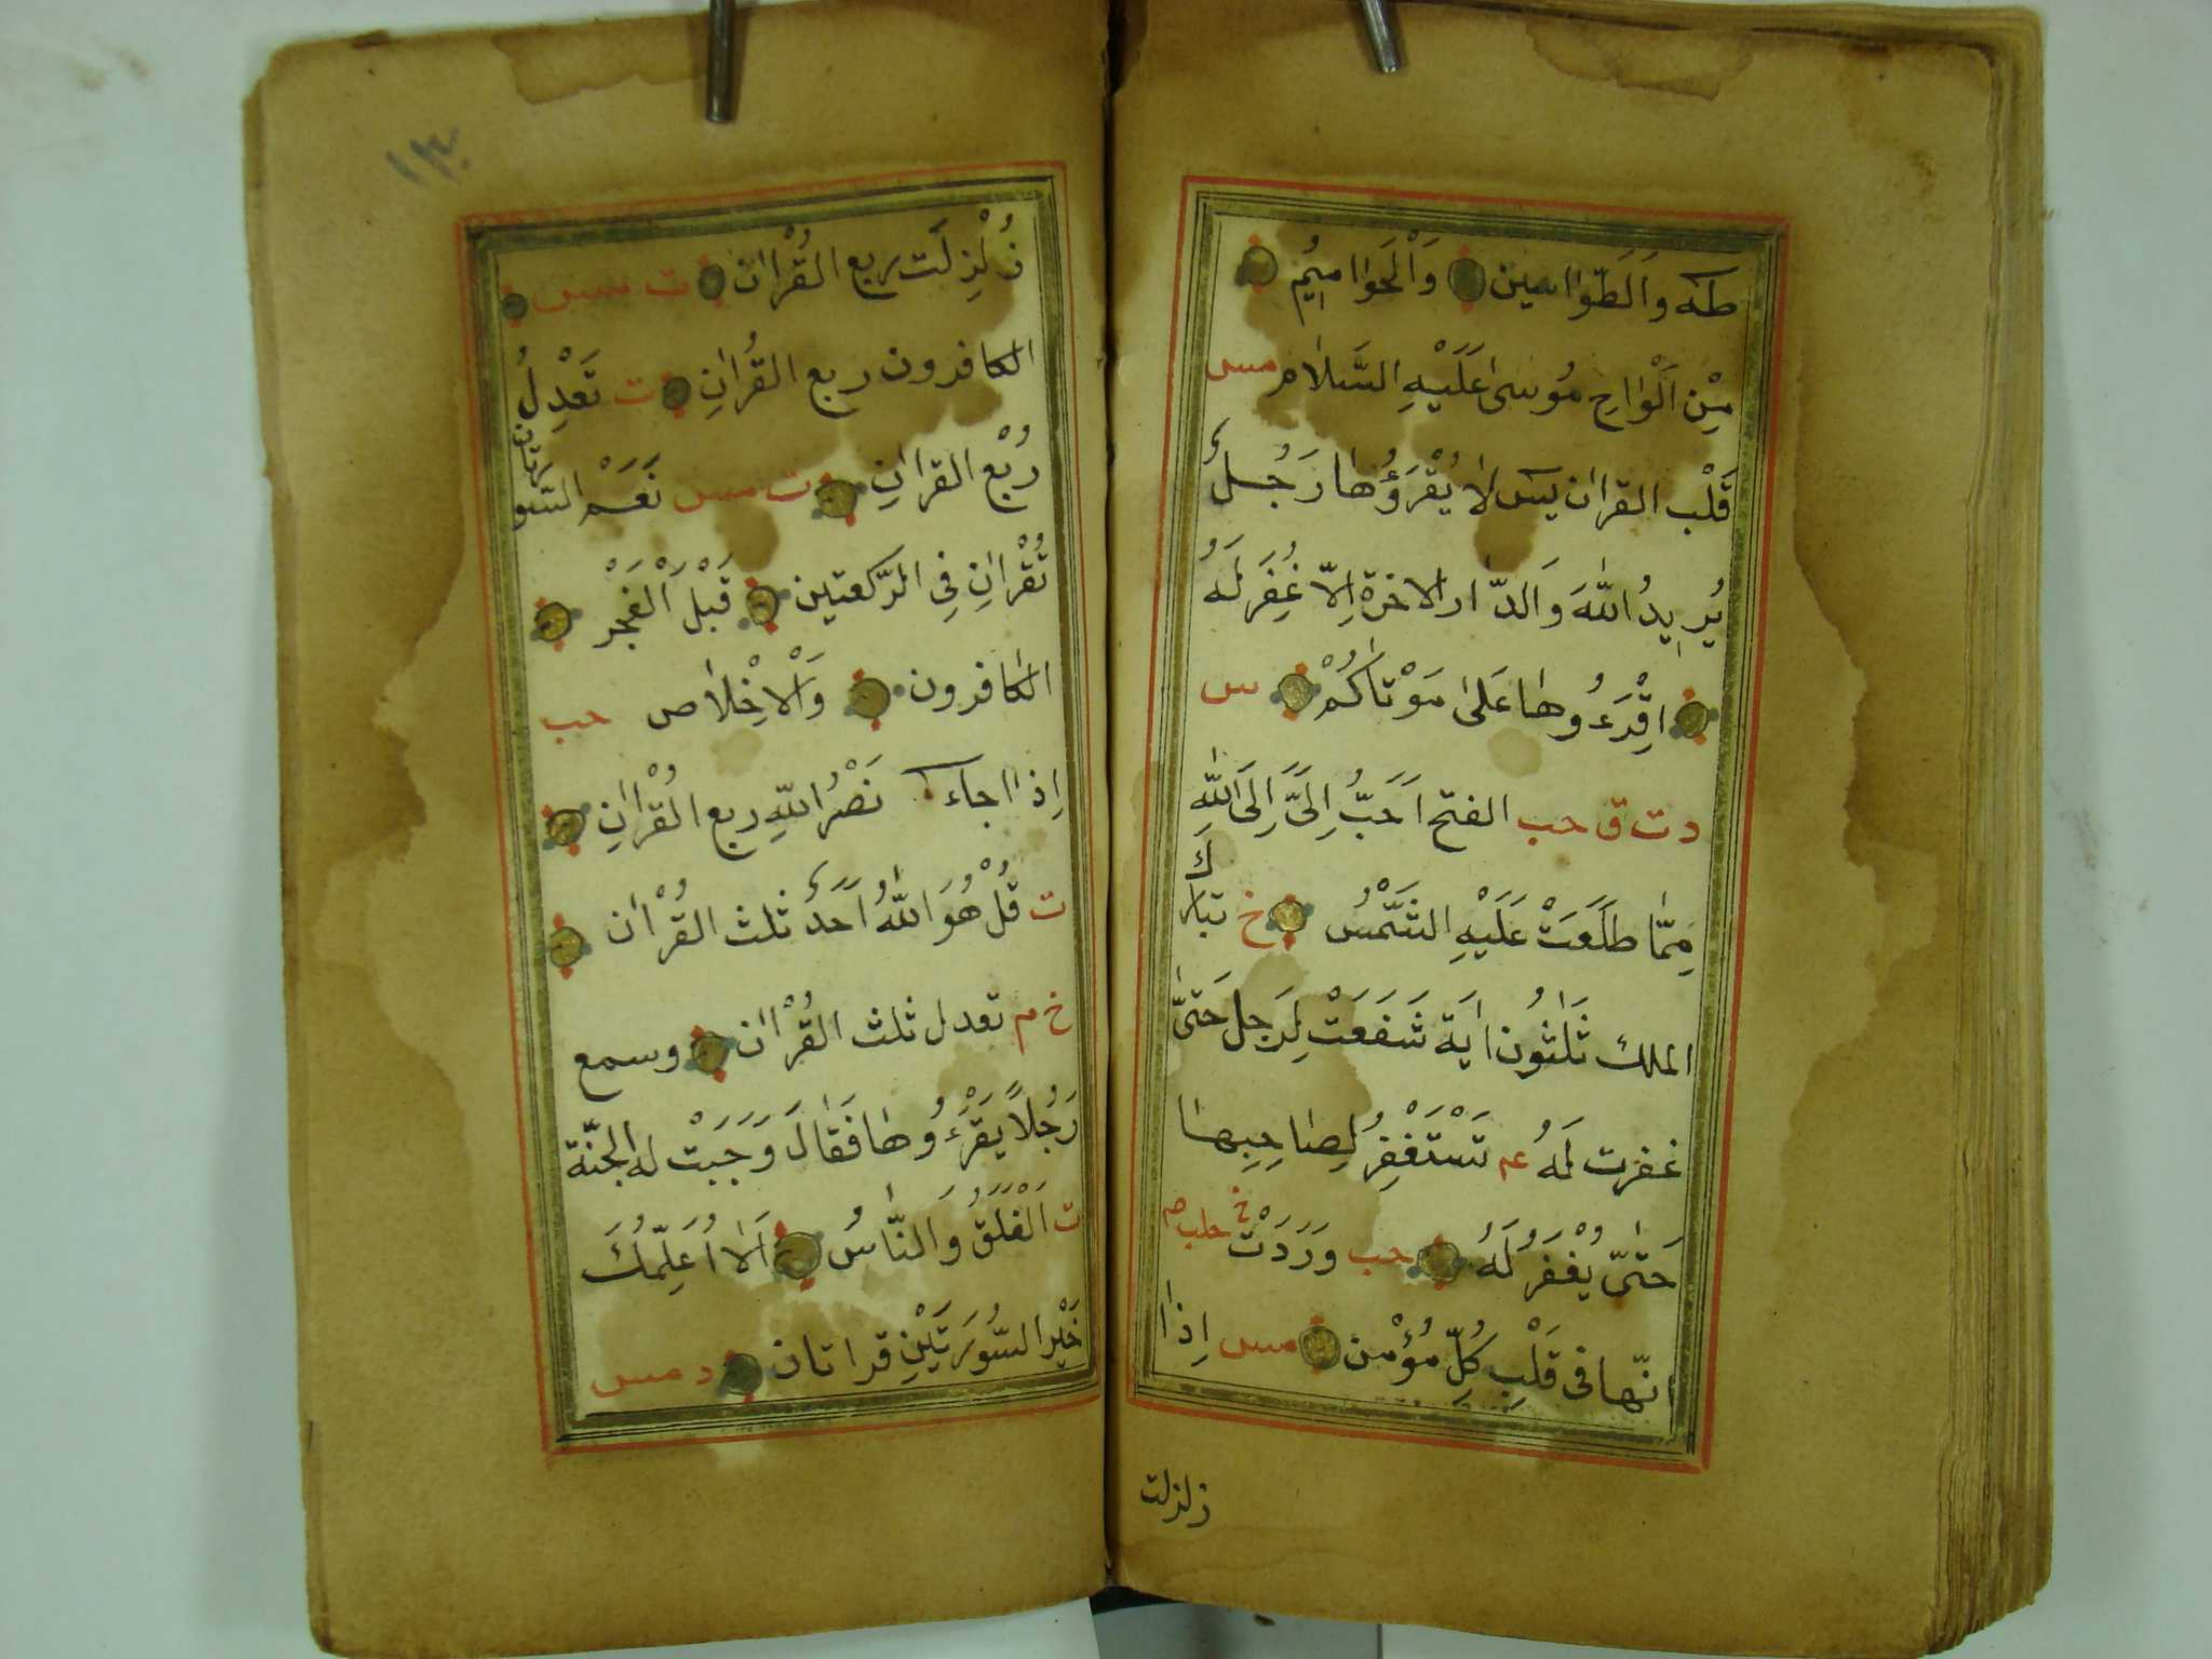 طٰهٰ وَالطَّوَاسِين وَالْحَوَامِيمِ
مِنْ اَلْوَاحِ مُوسٰى عَلَيْهِ السَّلَام مس
قَلْب القران يس لَا يَقْرَؤُهَا رَجُلٌ
يُرِيدُ اللّٰهَ وَالدَّار الاخرة اِلَّا غُفِرَ لَهُ
اِقْرَءُوهَا عَلٰى مَوْتَاكُمْ س
د ت ق حب الفتح اَحَبُّ اِلَىَّ اِلَى اللّٰهِ
مِمَّا طَلَعَتْ عَلَيْهِ الشَّمْسُ خ تبارك
الملك ثَلٰثُون اٰيَة شَفَعَتْ لِرَجُل حَتّٰى
غفرت لَهُ عه تَسْتَغْفِرُ لِصَاحِبِهَا
حَتّٰى يُغْفَرَ لَهُ حب وَرَدَتْ
انّها فى قَلْبِ كُلِّ مُؤْمِن مس اِذَا
زلزلت
١٣٠
زُلْزِلَت ربع الْقُرْاٰن ت مس
الكافرون ربع القُراٰنِ ت تَعْدِلُ
رُبْع القراٰنِ ت مس نَعَمْ السّورتان
تُقْرَاٰنِ فِى الرّكعتين قَبْلَ الْفَجْر
الكافرون وَالْاِخْلَاص حب
اِذَا جاء نَصْرُ اللّٰهِ ربع الْقُرْاٰنِ
ت قُلْ هُوَ اللّٰهُ اَحَدٌ ثلث القُرْاٰن
خ م تعدل ثلث القُرْاٰن وسمع
رَجُلًا يَقْرَءُوهَا فَقَالَ وَجَبَتْ له الجنّة
ت اَلْفَلَقُ وَالنَّاسُ اَلَا اُعَلِّمُكَ
خَيْر السُّورَتَيْنِ قراتان د مس